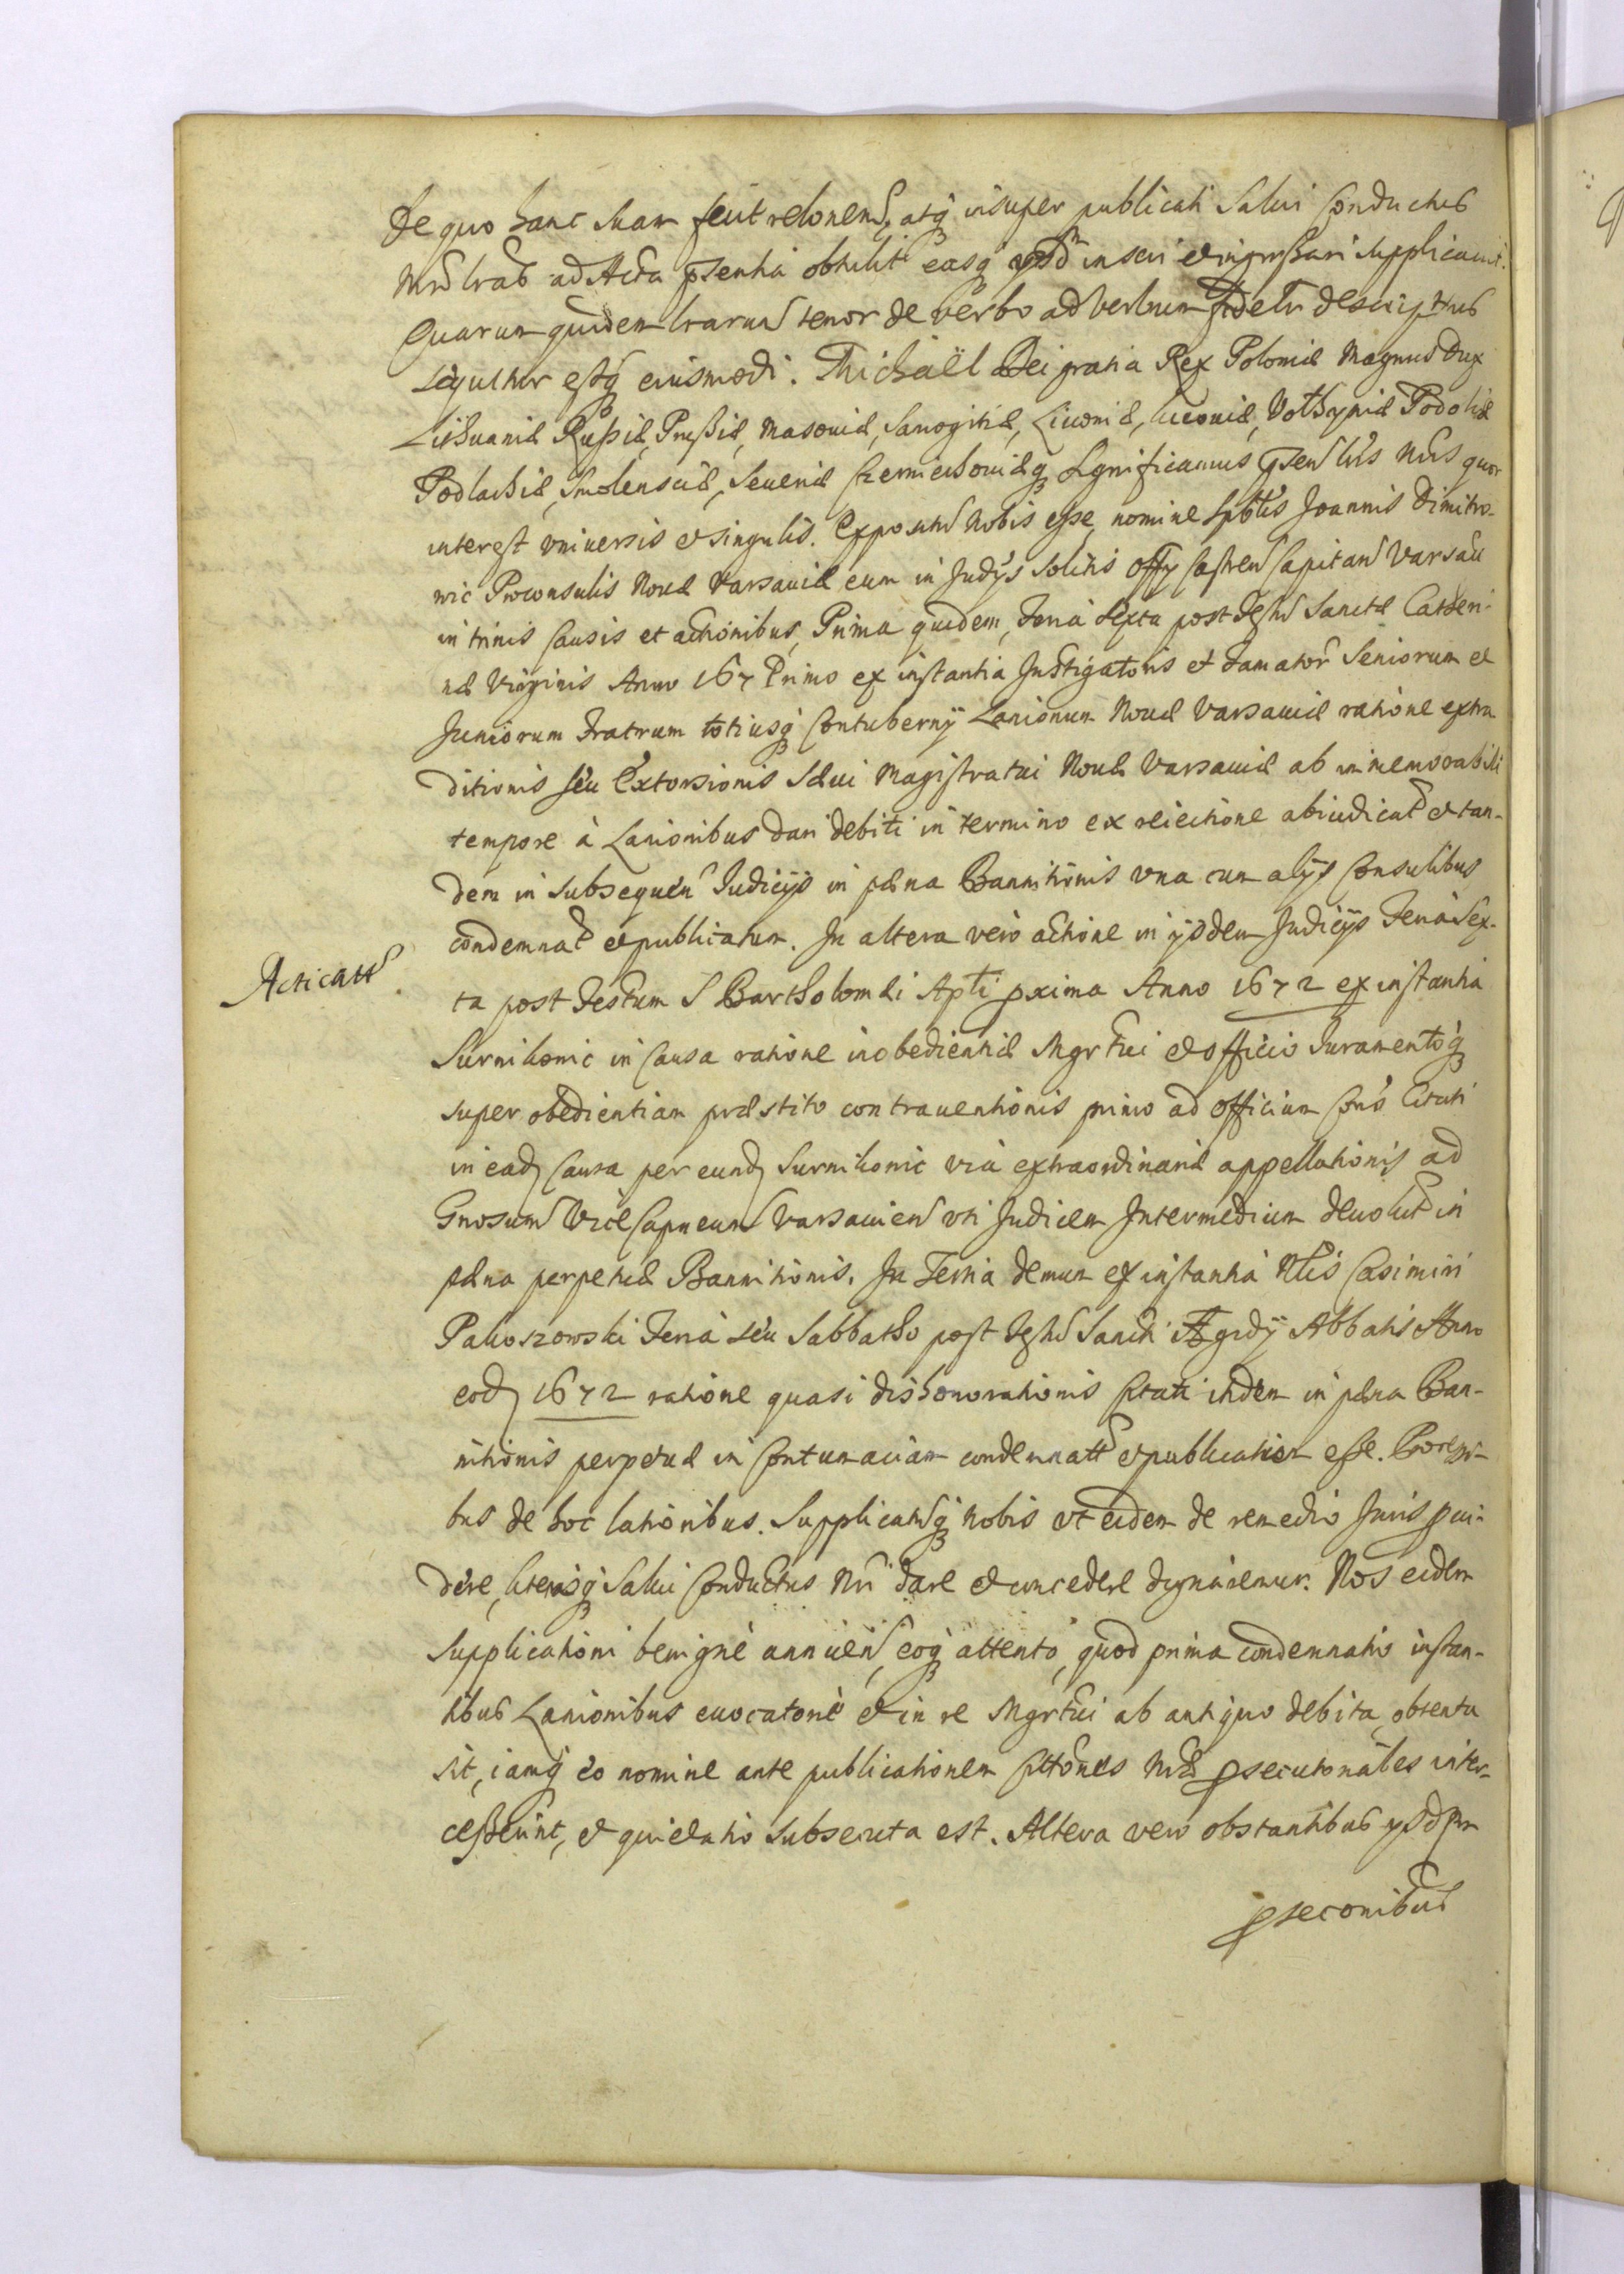 De quo hanc suam fecit relonem, atq insuper publicati Salui Conductus
Nri lras ad Acta psentia obtulit easq ysd inscri et ingrossari supplicauit.
Quarum quidem lrarum tenor de verbo ad verbum fidelr descriptus
sequitur estq eiusmodi. Michaël Dei gratia Rex Poloniæ Magnus Dux
Lithuaniæ Rußiæ, Prußiæ, Masouiæ, Samogitiæ, Liuoniæ, Kiiouiæ, Volhyniæ Podoliæ
Podlachiæ, Smolensciæ, Seueriæ Czerniechouiæq Significamus psen lris Nris quor
interest vniuersis et singulis. Expositu Nobis esse, nomine Spblis Joannis Dimitro-
wic Proconsulis Nouæ Varsauiæ eum in Judÿs solitis Offÿ Castren Capitan Varsau
in trinis Causis et actionibus, Prima quidem, Feria sexta post Festu Sanctæ Catheri-
næ Virginis Anno 167 Primo ex instantia Instigatoris et Damator Seniorum et
Juniorum Fratrum totiusq Contubernÿ Lanionum Nouæ Varsauiæ ratione extra
ditionis seu Extorsionis Sæui Magistratui Nouæ Varsauiæ ab immemorabili
tempore à Lanionibus dari debiti in termino ex reiectione abiudicat et tan-
dem in subsequen Judicijs in pæna Bannitionis vna cum alijs Consulibus
condemnat et publicatum. In altera vero actione in ijsdem Judicijs Feria Sex-
Acticatt.
ta post Festum S Bartholomæi Apli pxima Anno 1672 ex instantia
Surnikowic in Causa ratione inobedientiæ Mgrtui et officio Juramentoq
super obedientiam præstito contrauentionis primo ad officium Cons Citati
in ead Causa per eund Surnikowic via extraordinariæ appellationis ad
Gnosum Vice Capneum Varsauien vti Judicem Intermedium deuolut in
pæna perpetuæ Bannitionis. In Tertia demum ex instantia Nlis Casimiri
Pakoszowski Feria seu Sabbatho post Festu Sancti Ægidÿ Abbatis Anno
eod 1672 ratione quasi dishonorationis Citati itidem in pæna Ban-
nitionis perpetuæ in Contumaciam condemnatt et publicatum esse.
bus de hoc lationibus. Supplicatuq Nobis vt eidem de remedio Juris pui-
dere, literasq Salui Conductus Nri dare et concedere dignaremur. Nos eidem
supplicationi benignè annuen, eoq attento, quod prima condemnatio instan-
tibus Lanionibus euocatoriè et in re Mgrtui ab antiquo debita, obtenta
sit, iamq eo nomine ante publicationem Citones Nræ psecutoriales inter-
ceßerint, et quietatio subsecuta est. Altera vero obstantibus ysdem
pseconibus